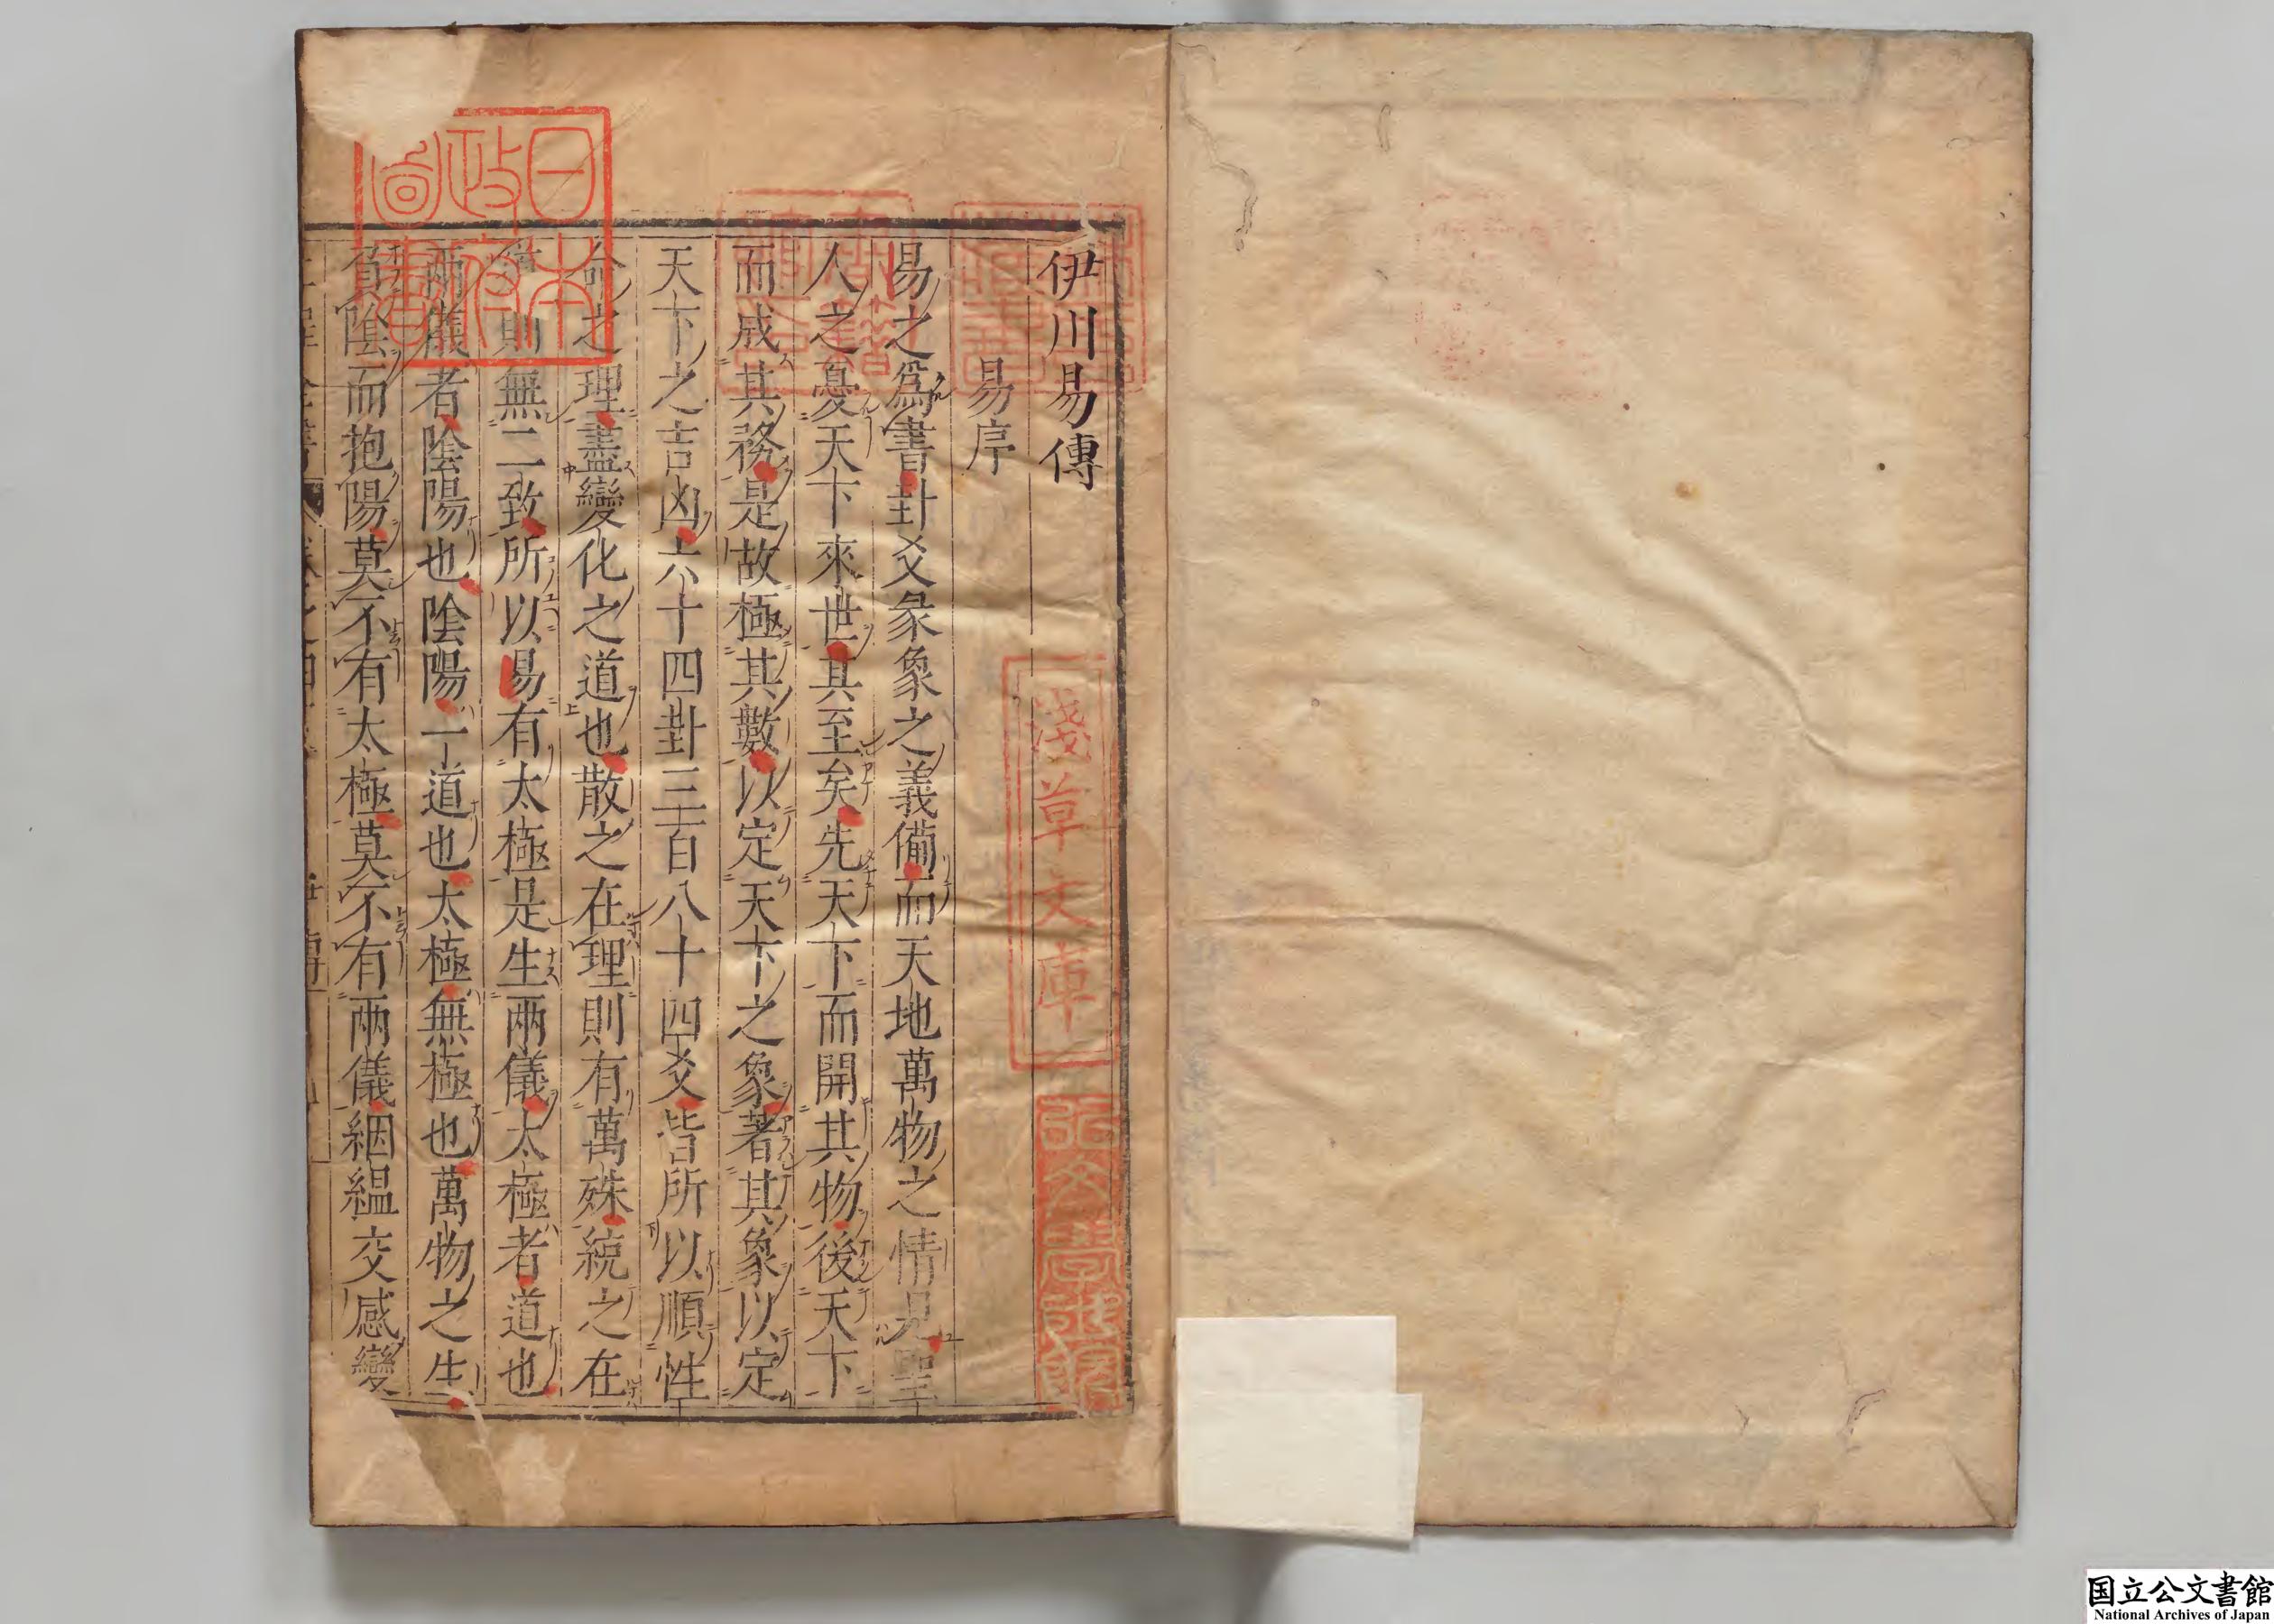 伊川易傳
易序
易之爲書卦爻彖象之義備而天地萬物之情見聖
人之憂天下來世其至矣先天下而開其物後天下
而成其務是故極其數以定天下之象著其象以定
天下之吉凶六十四卦三百八十四爻皆所以順性
命之理盡變化之道也散之在理則有萬殊統之在
道則無二致所以易有太極是生兩儀太極者道也
兩儀者陰陽也陰陽一道也太極無極也萬物之生
負陰而抱陽莫不有太極莫不有兩儀絪縕交感變
日本
政府
圖書
淺草文庫
国立公文書館
National Archives of Japan